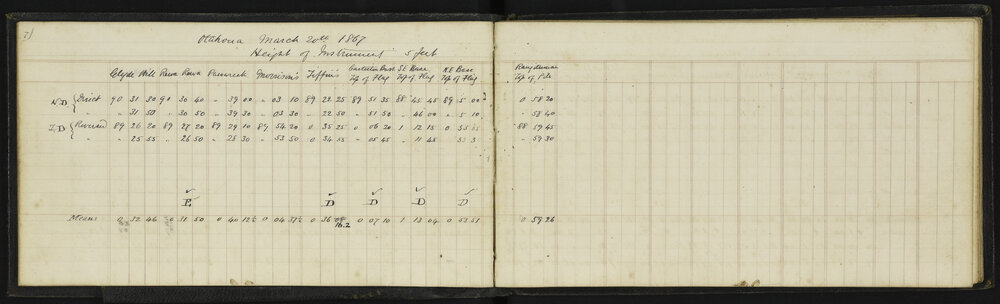 Otahoua March 20th 1867
Height of Instrument 5 feet
Clyde Hill Rewa Rewa Pinnacle Morrison's Tiffin's Top of Flag S.E. Base Top of Flag N.E. Base Top of Flag Top of Pile
Direct 90 31 50 90 30 40 " 39 00 " 03 10 89 22 25 89 51 35 88 45 45 89 5 00 0 58 20
" 31 50 " 30 50 " 39 30 " 03 30 " 22 50 " 51 50 " 46 00 " 5 10 " 58 40
Reversed 89 26 20 89 27 20 89 29 10 89 54 20 0 35 25 0 06 20 1 12 15 0 55 35 88 59 45
" 25 55 " 26 50 " 28 30 " 53 50 0 34 55 " 05 45 " 11 45 " 59 30
E D D D D
Means 0 32 46 0 31 50 0 40 12½ 0 04 37½ 0 36 16.2 0 07 10 1 13 04 0 53 51 0 59 26